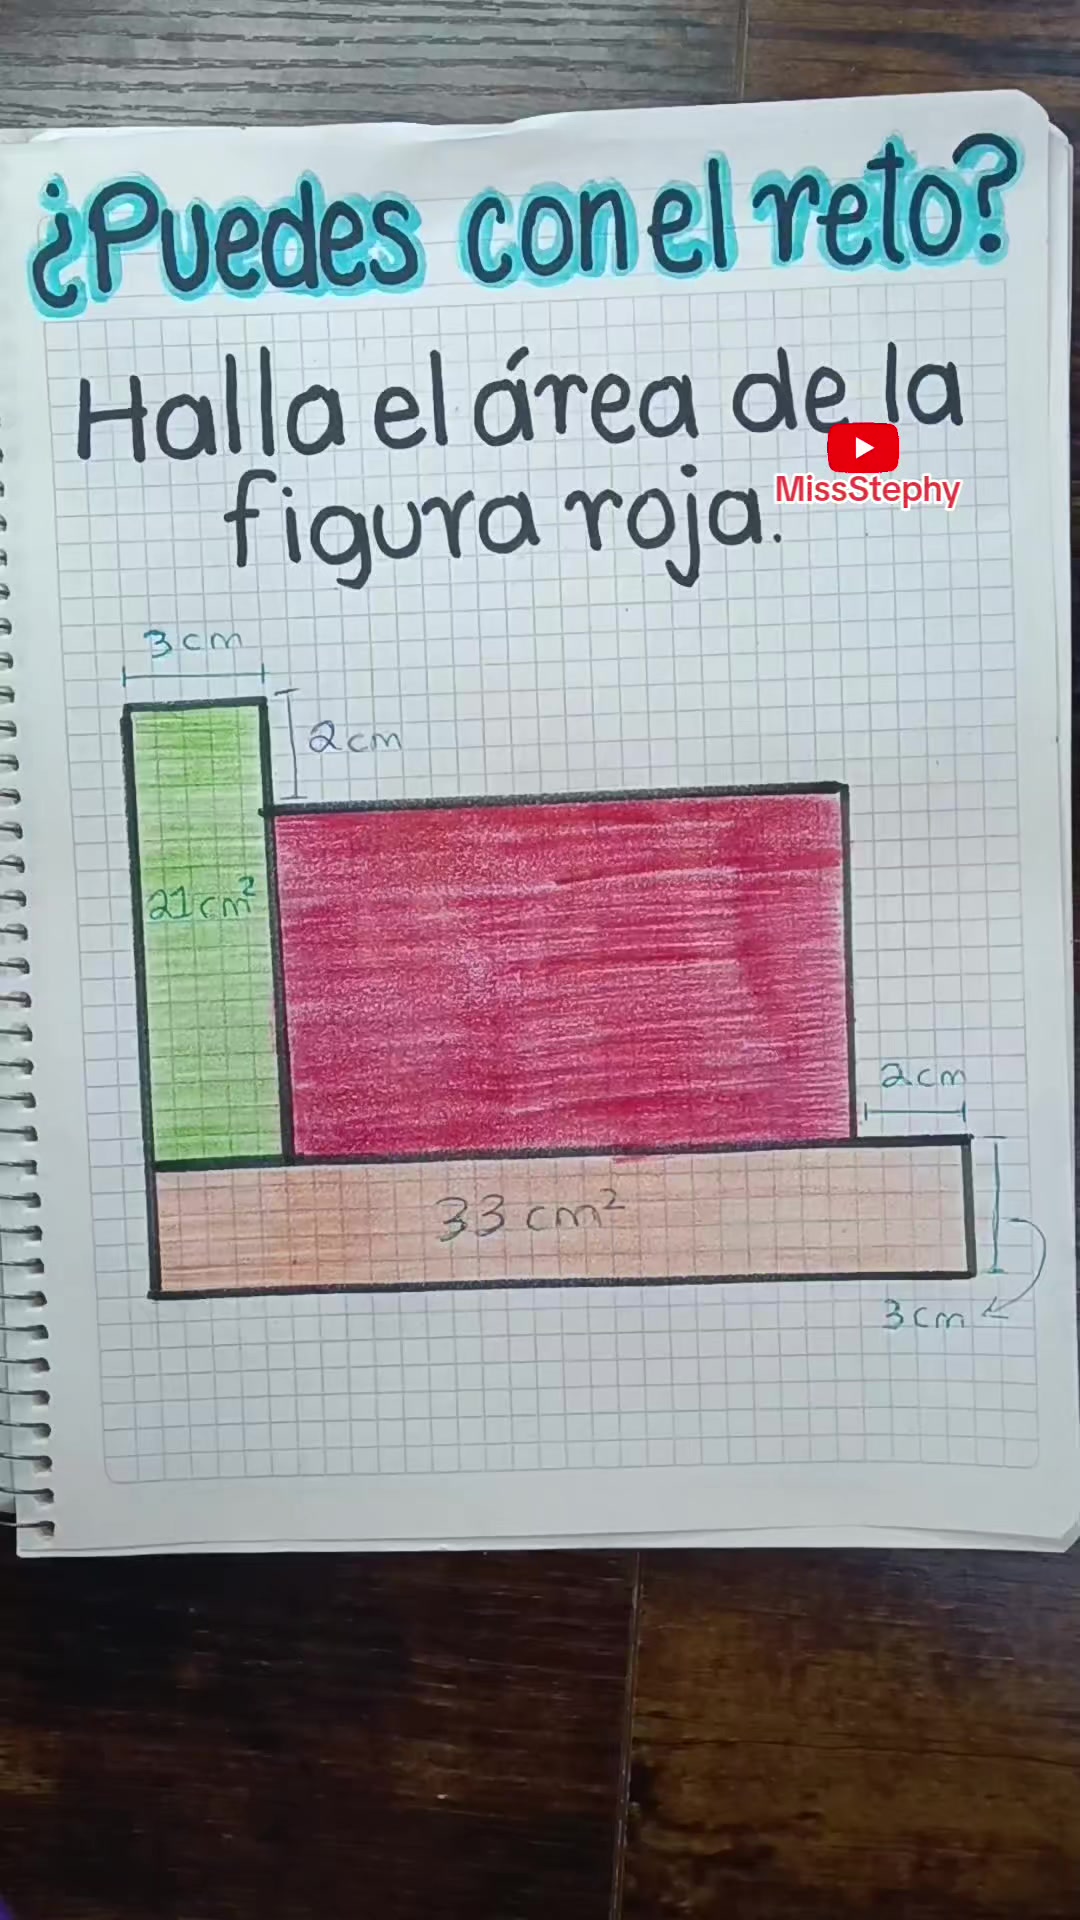 ¿Puedes con el reto?
Halla el área de la
figura roja.
MissStephy
3 cm
2 cm
21 cm²
2 cm
33 cm²
3 cm